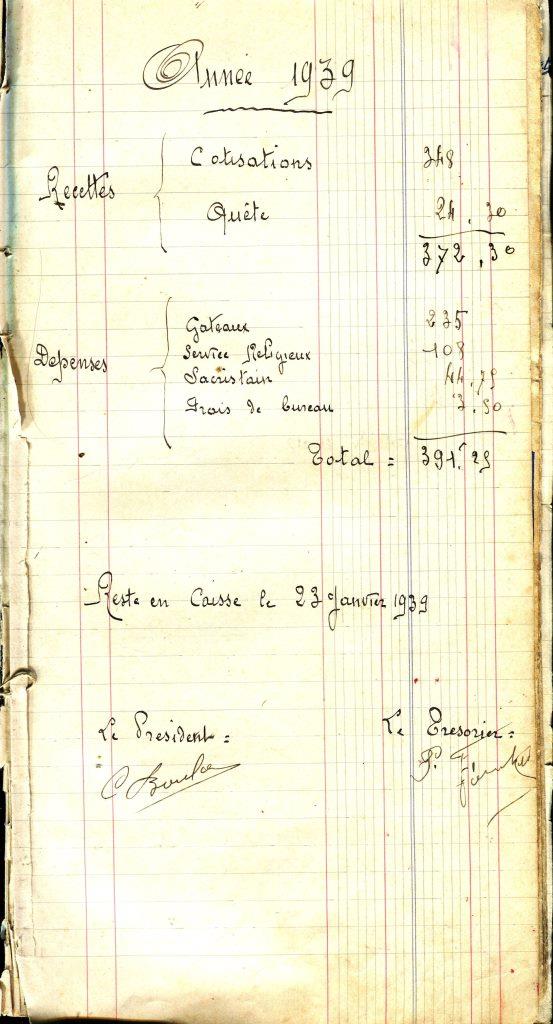 Année 1939
Recettes
Cotisations 348
Quête 24.30
372.30
Depenses
Gateaux 235
Service Religieux 108
Sacristain 44.75
Frais de bureau 3.50
Total = 391.25
Reste en Caisse le 23 Janvier 1939
Le President = Le Tresorier =
C P.